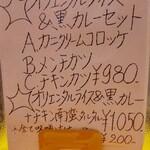 オリエンタルライス
&黒カレーセット
A.カニクリームコロッケ
B.メンチカツ
チキンカツ¥980.
オリエンタルライス&黒カレー
+チキン南蛮タルタル¥1050.
200-